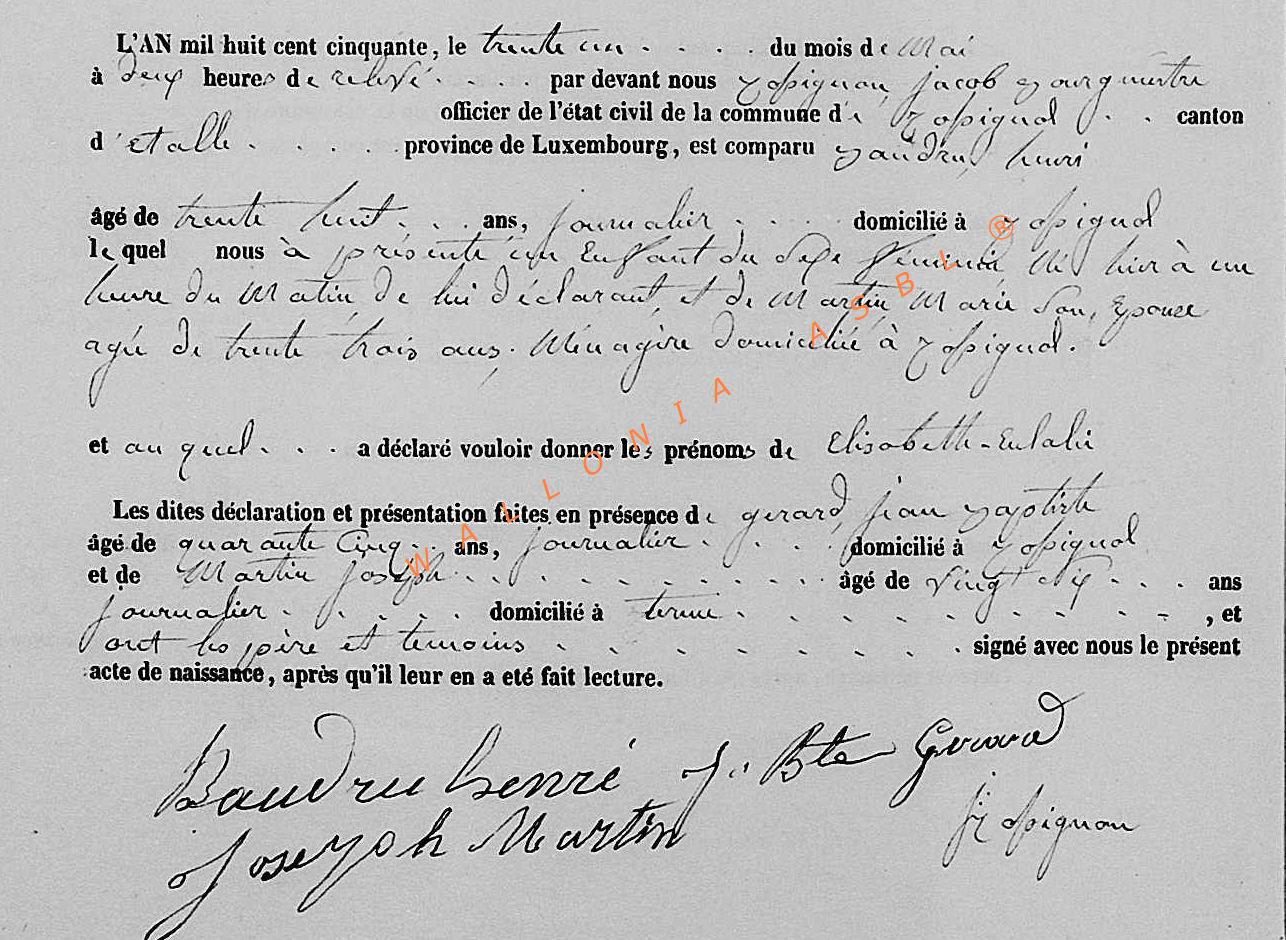 L'AN mil huit cent cinquante, le trente un . . . . du mois de Mai
à deux heures de relevé . . . . par devant nous jacob
officier de l'état civil de la commune d . . canton
d'etalle . . . . . province de Luxembourg, est comparu henri
âgé de trente huit . . . ans, journalier . . . . domicilié à
le quel nous à présenté un Enfant du sexe feminin Né hier à un
heure du Matin, de lui déclarant, et de Martin, Marie Son, Epouse
agée de trente trois ans. Ménagère domiciliée à
et au quel . . . a déclaré vouloir donner les prénoms de Elisabeth-Eulalie
Les dites déclaration et présentation faites en présence de gerard, jean
âgé de quarante Cinq . . ans, journalier . . . . domicilié à
et de Martin joseph . . . . . . . . . . . âgé de vingt six . . . ans
journalier . . . . . domicilié à terme . . . . . . . . . , et
ont les père et temoins . . . . . . . . signé avec nous le présent
acte de naissance, après qu'il leur en a eté fait lecture.
Baudru henri j. Bte Gerard
Joseph Martin
WALLONIA ASBL ®